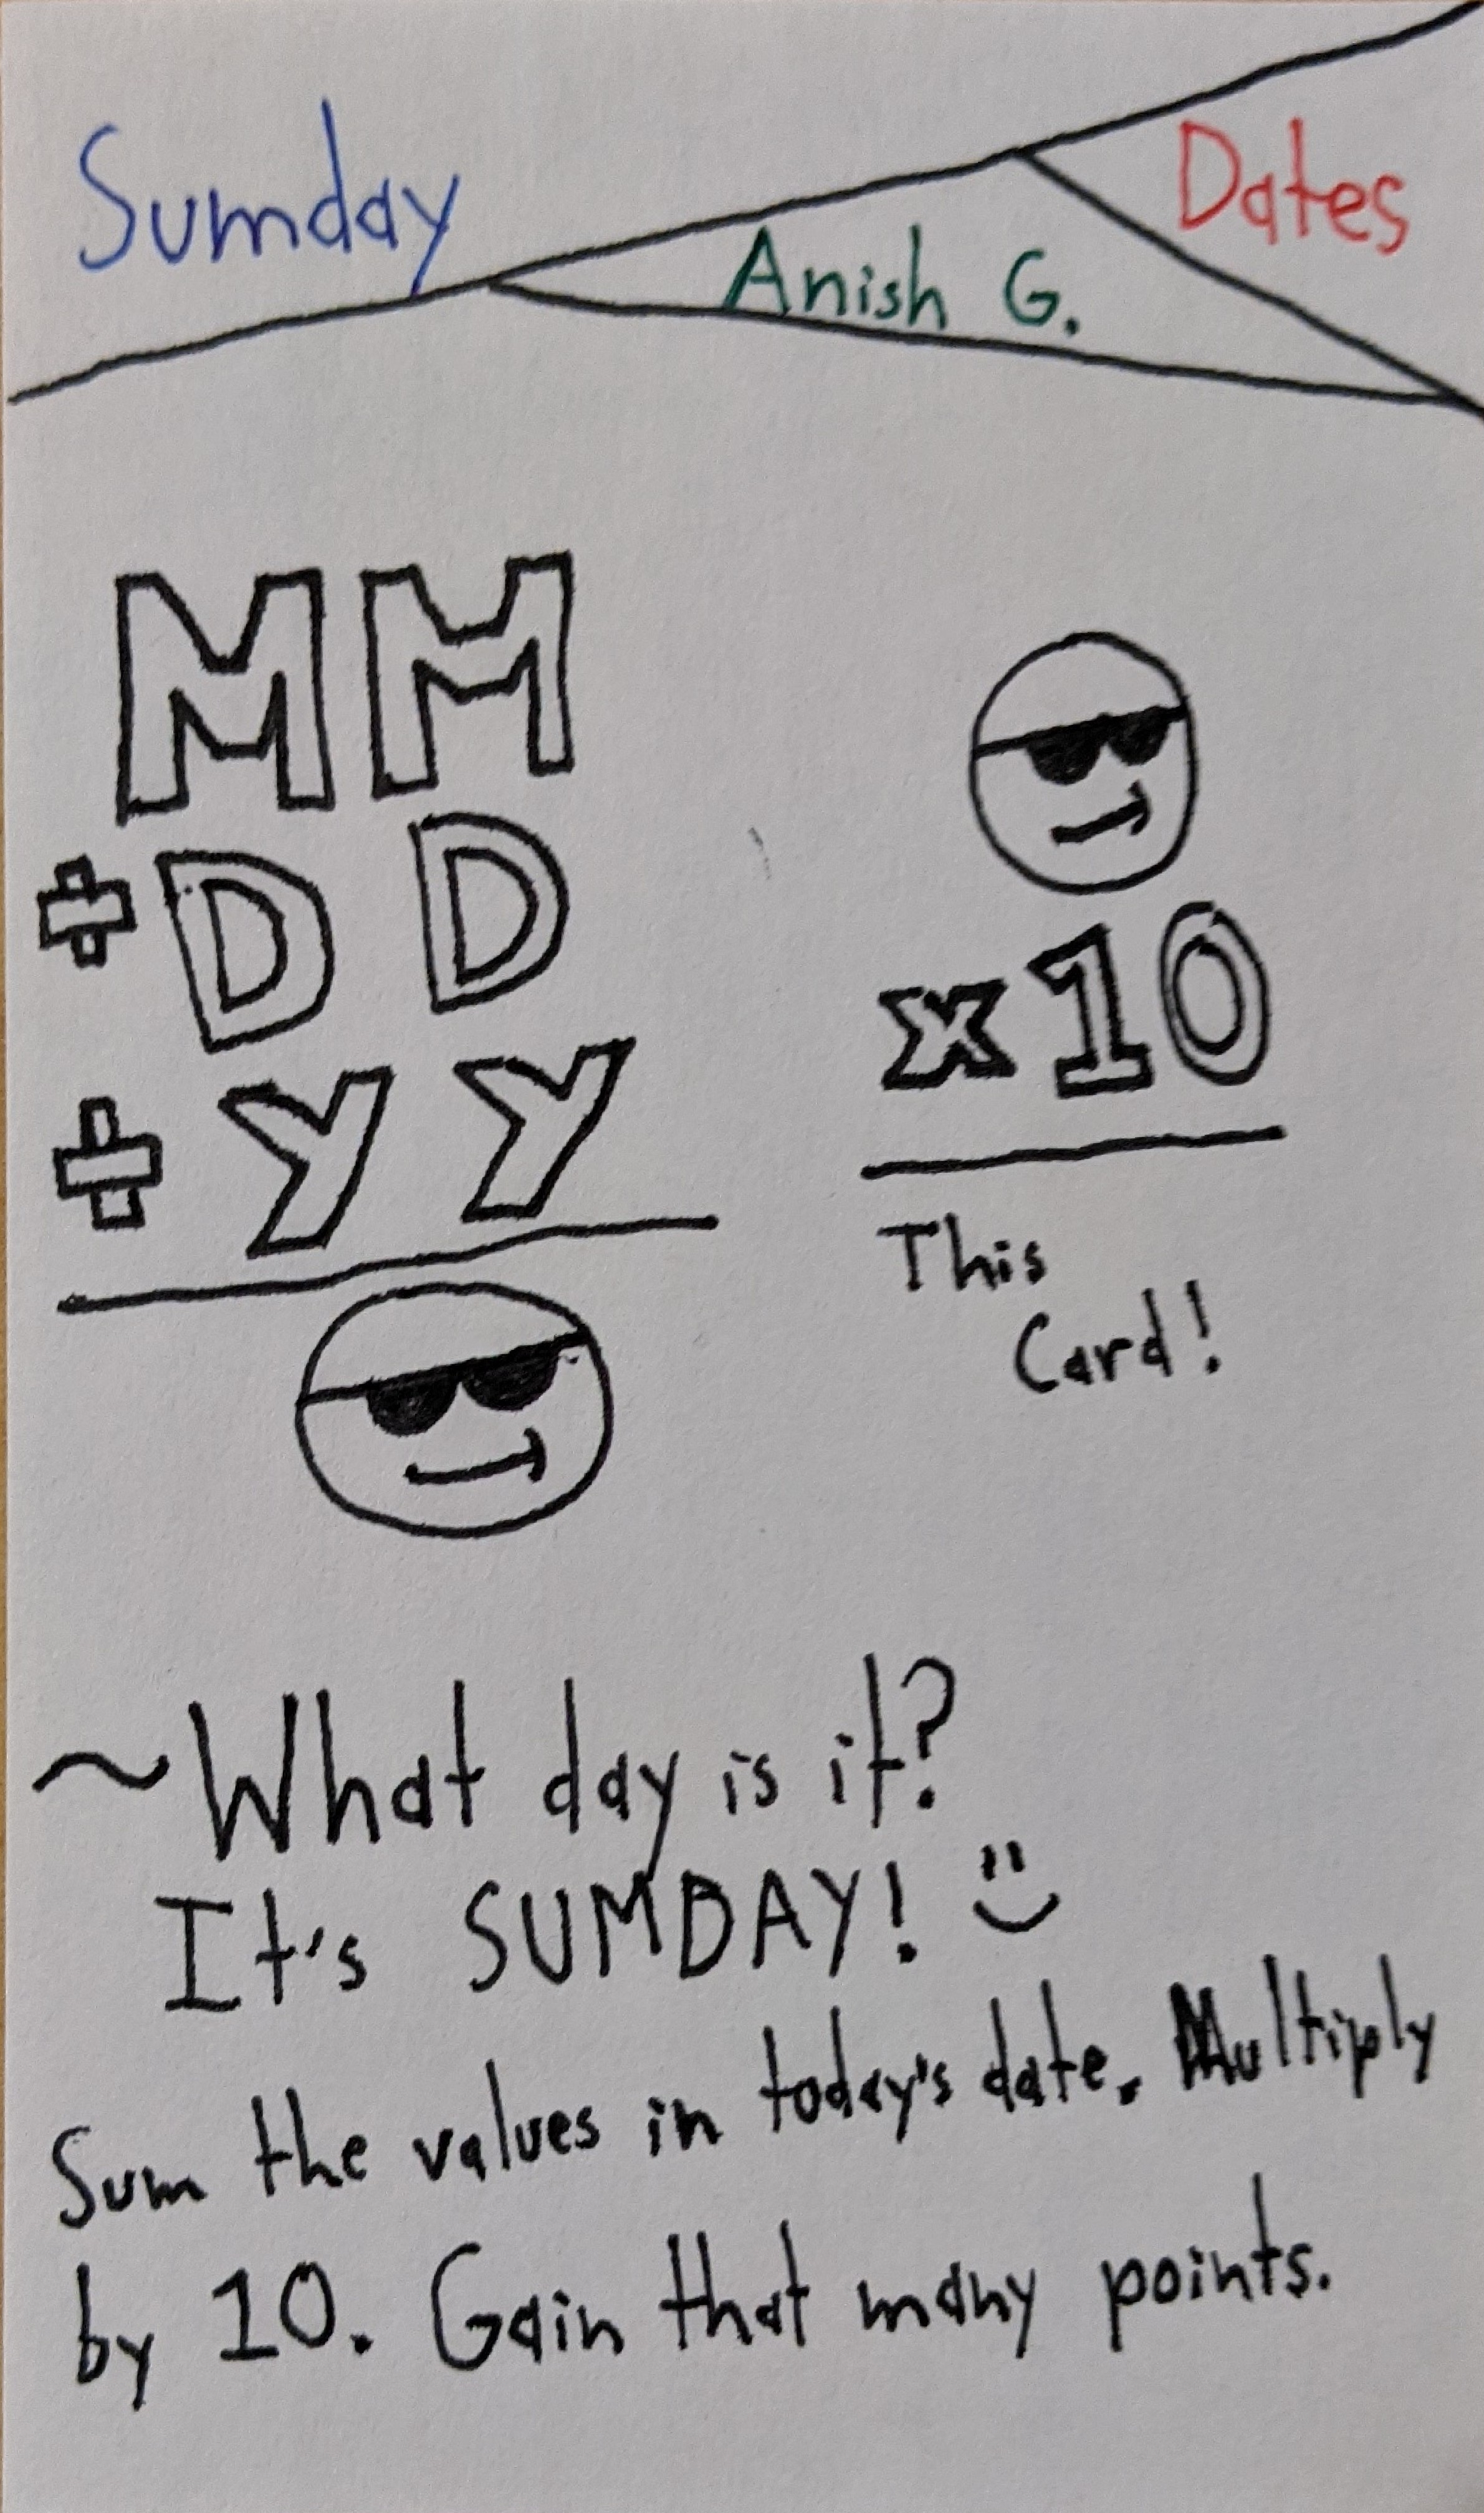 Sumday
Anish G.
Dates
MM
+DD
+YY
x10
This
Card!
~What day is it?
It's SUMDAY!
Sum the values in today's date. Multiply
by 10. Gain that many points.